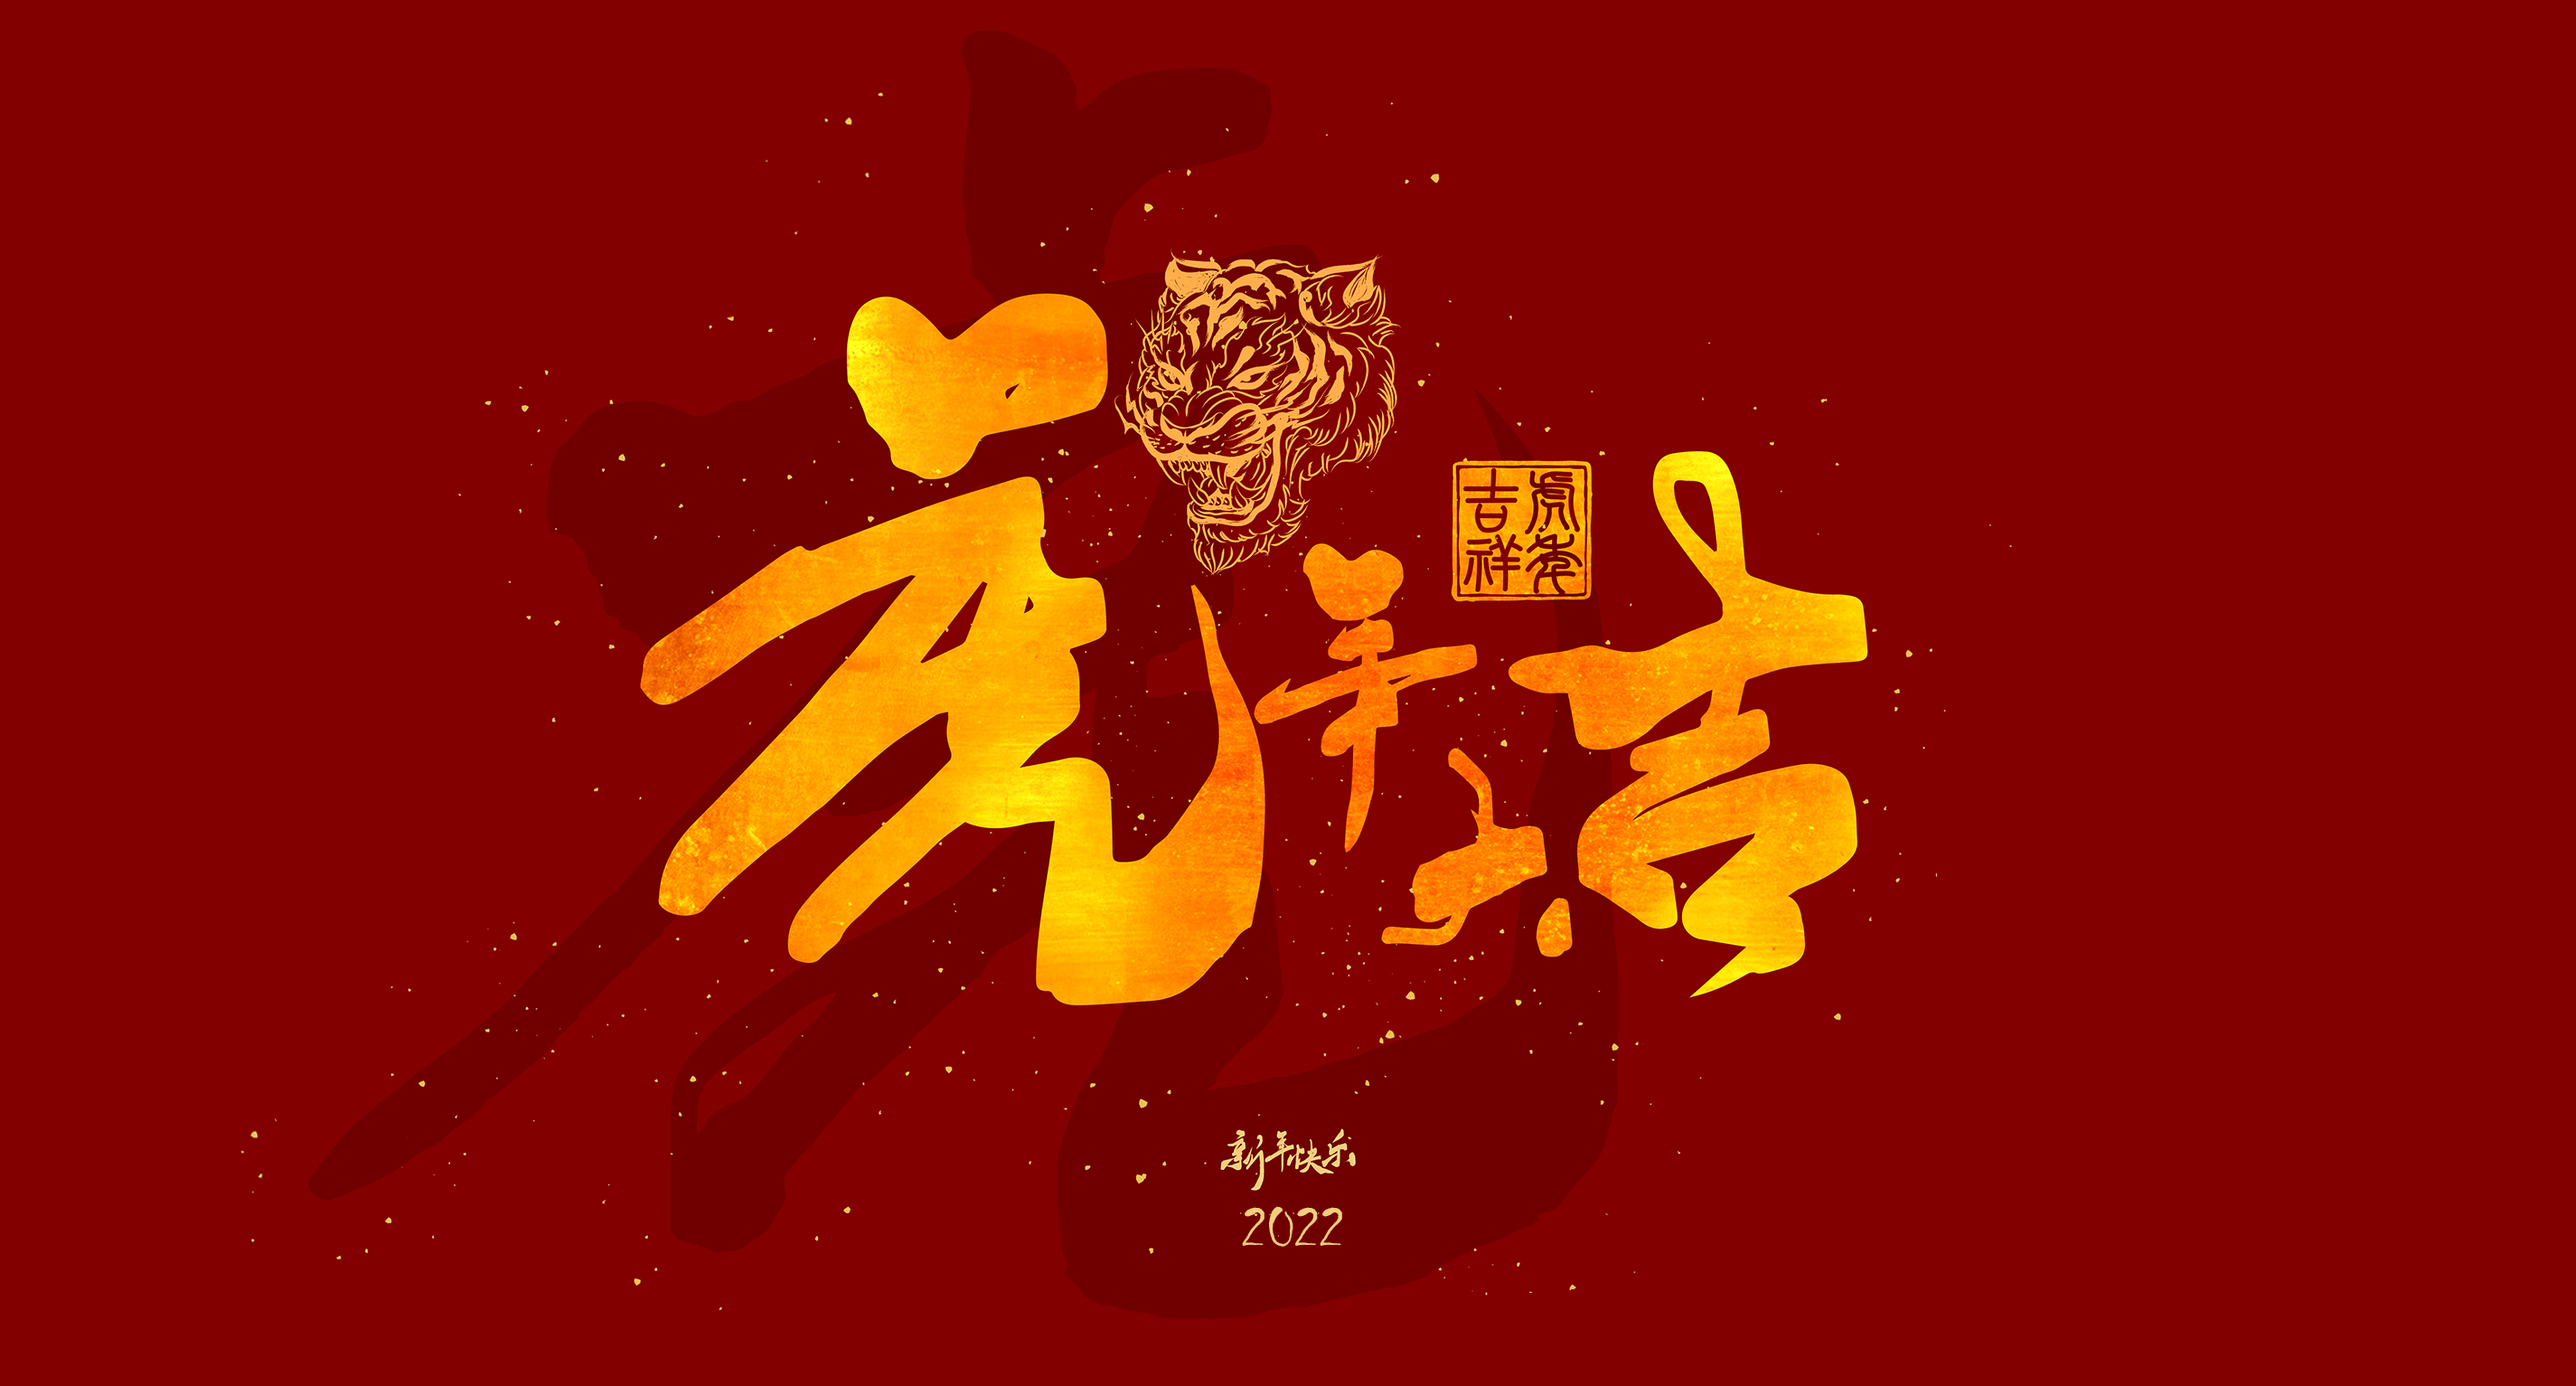 虎年大吉
虎年
吉祥
新年快乐
2022